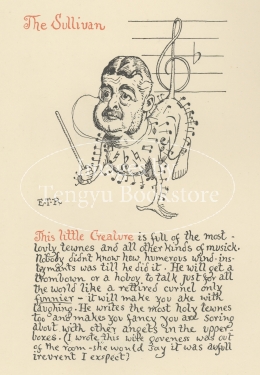 The Sullivan
E.T.R.
Tengyu Bookstore
This little Creature is full of the most
lovly tewnes and all other kinds of musick.
Nobody didnt know how humerous wind-ins-
tyrmants was till he did it. He will get a
trombown or a hoboy to talk just for all
the world like a rettired curnel only
funnier - it will make you ake with
laughing. He writes the most holy tewnes
too and makes you fancy you are soring
about with other angels in the upper
boxes. (I wrote this wile goveness was out
of the room - she would say it was
irevrent I exspect)